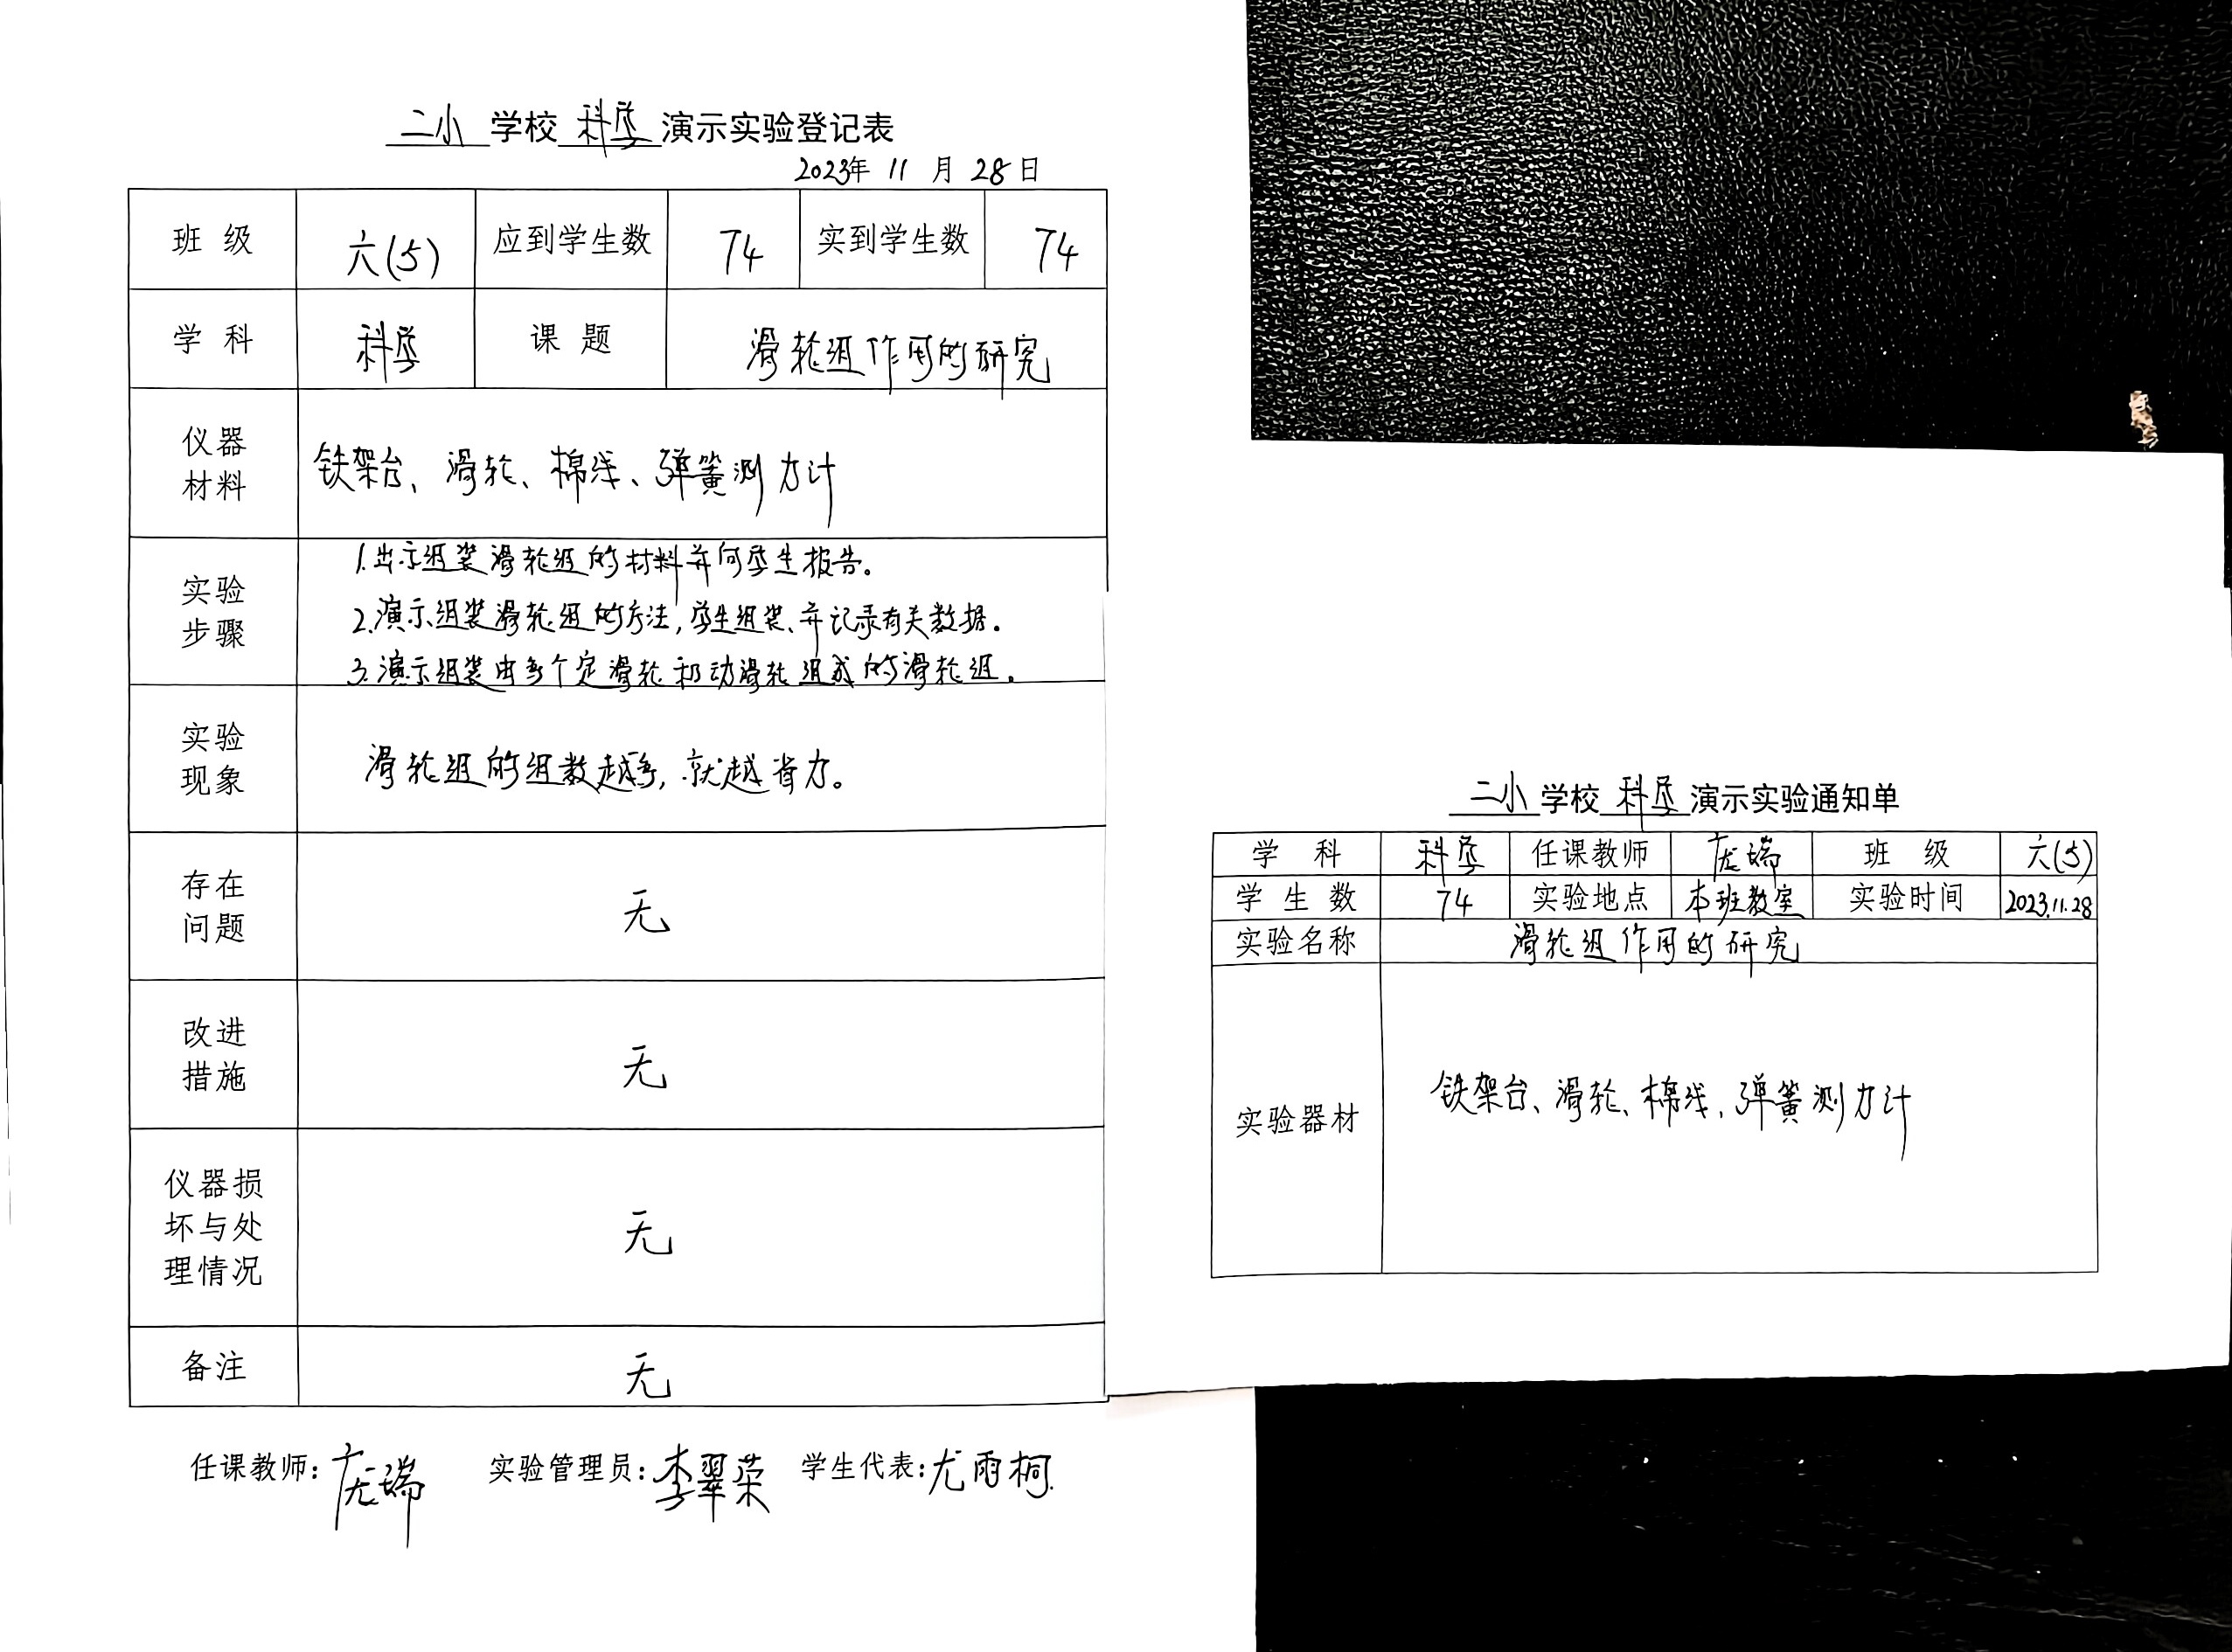 二小 学校 科学 演示实验登记表
2023年 11 月 28 日
班 级 六(5) 应到学生数 74 实到学生数 74
学 科 科学 课 题 滑轮组作用的研究
仪器
材料
铁架台、滑轮、棉线、弹簧测力计
实验
步骤
1.出示组装滑轮组的材料并向学生报告。
2.演示组装滑轮组的方法,学生组装、并记录有关数据。
3.演示组装由多个定滑轮和动滑轮组成的滑轮组。
实验
现象
滑轮组的组数越多,就越省力。
存在
问题
无
改进
措施
无
仪器损
坏与处
理情况
无
备注 无
任课教师:庞瑞 实验管理员:李翠荣 学生代表:尤雨桐.
二小 学校 科学 演示实验通知单
学 科 科学 任课教师 庞瑞 班 级 六(5)
学 生 数 74 实验地点 本班教室 实验时间 2023.11.28
实验名称 滑轮组作用的研究
实验器材 铁架台、滑轮、棉线、弹簧测力计